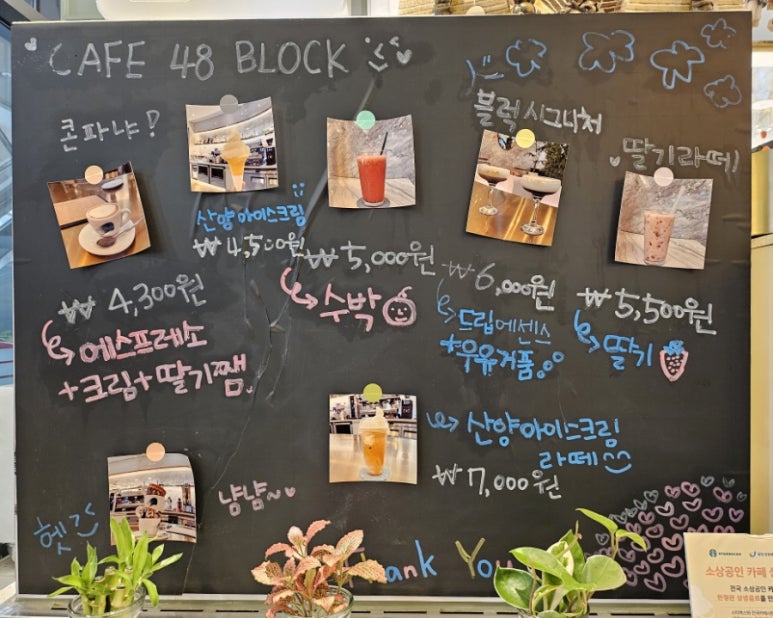 CAFE 48 BLOCK
콘파냐!
블럭시그니처
딸기라떼
산양아이스크림
₩4,500원
₩5,000원
₩6,000원
₩4,300원
₩5,500원
수박
드립에센스
+우유거품
딸기
에스프레소
+크림+딸기쨈
산양아이스크림
라떼
₩7,000원
냠냠~
헷
Thank You
소상공인 카페
전국 소상공인
한정판 상생음료를